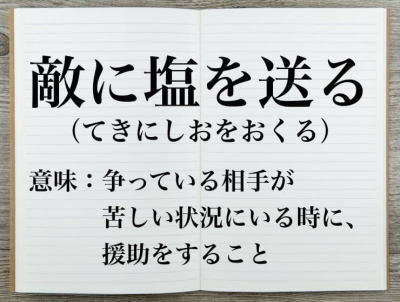 敵に塩を送る
(てきにしおをおくる)
意味：争っている相手が
苦しい状況にいる時に、
援助をすること